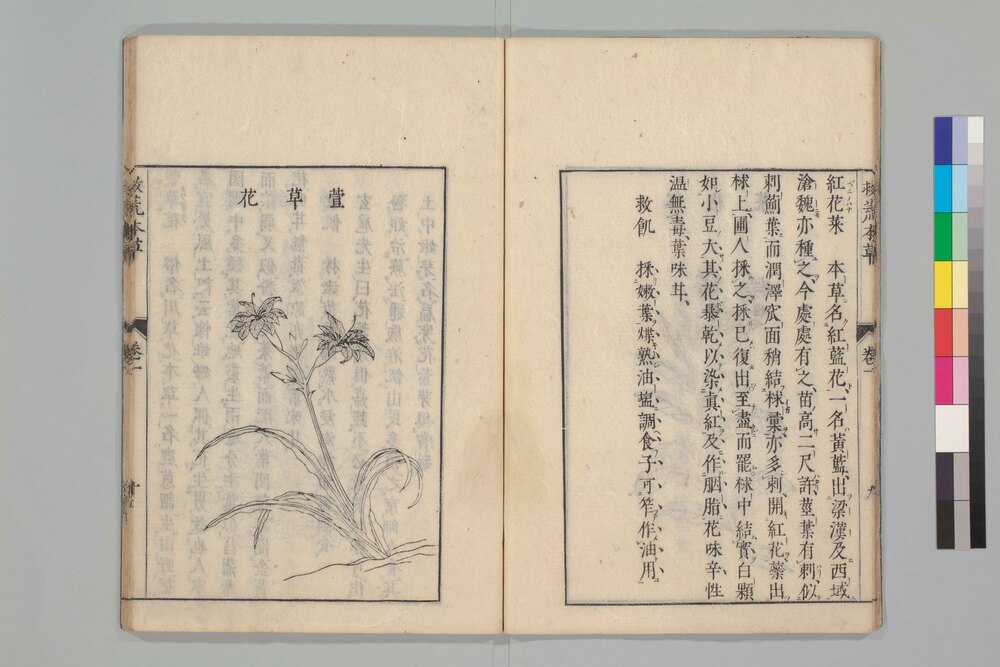 救荒本草
卷一
紅花菜 本草名紅藍花、一名黃藍、出梁漢及西域
滄魏亦種之、今處處有之、苗高二尺許、莖葉有刺、似
刺薊葉而潤澤、窊面、稍結梂彙、亦多刺、開紅花、蘂出
梂上、圃人採之、採已復出、至盡而罷、梂中結實、白顆
如小豆大、其花暴乾、以染真紅、及作胭脂、花味辛、性
温、無毒、葉味甘、
救飢 採嫩葉煠熟、油鹽調食、子可笮作油用、
萱草花
救荒本草
卷一